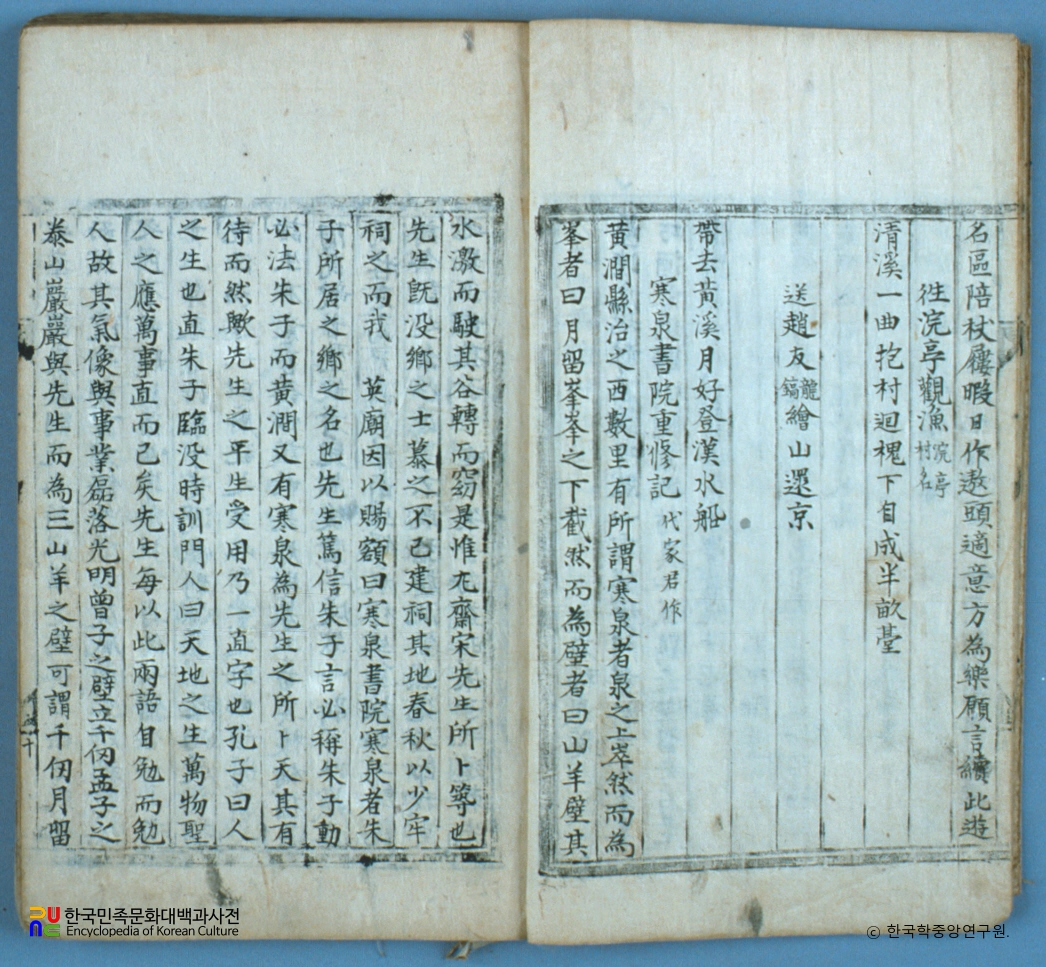 名區陪杖屨暇日作遨頭適意方為樂願言續此遊
往浣亭觀漁浣亭村名
清溪一曲抱村迴槐下自成半畝臺
送趙友龍鎬繪山還京
帶去黃溪月好登漢水船
寒泉書院重修記代家君作
黃澗縣治之西數里有所謂寒泉者泉之上崒然而為
峯者曰月留峯峯之下截然而為壁者曰山羊壁其
水激而駛其谷轉而窈是惟尤齋宋先生所卜築也
先生旣沒鄉之士慕之不已建祠其地春秋以少牢
祠之而我 英廟因以賜額曰寒泉書院寒泉者朱
子所居之鄉之名也先生篤信朱子言必稱朱子動
必法朱子而黃澗又有寒泉為先生之所卜天其有
待而然歟先生之平生受用乃一直字也孔子曰人
之生也直朱子臨沒時訓門人曰天地之生萬物聖
人之應萬事直而已矣先生每以此兩語自勉而勉
人故其氣像與事業磊落光明曾子之壁立千仞孟子之
泰山巖巖與先生而為三山羊之壁可謂千仞月留
한국민족문화대백과사전
Encyclopedia of Korean Culture
© 한국학중앙연구원.